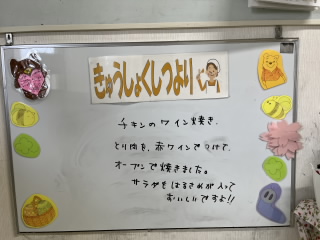 きゅうしょくしつより
チキンのワイン焼き。
とり肉を、赤ワインでつけて、
オーブンで焼きました。
サラダもはるさめが入って
おいしいですよ!!